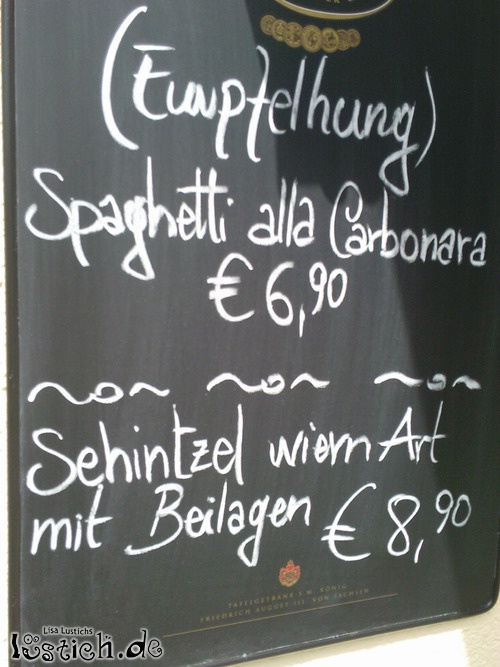 (Eunpfelhung)
Spaghetti alla Carbonara
€ 6,90
Sehintzel wiern Art
mit Beilagen € 8,90
TAFELGETRÄNK S.M. KÖNIG
FRIEDRICH AUGUST III. VON SACHSEN
Lisa Lustichs
lustich.de